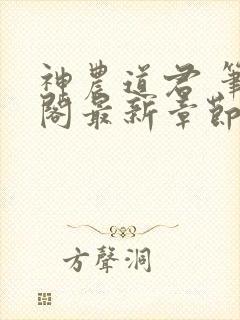 神農道君 筆
閣最新章節
方聲洞